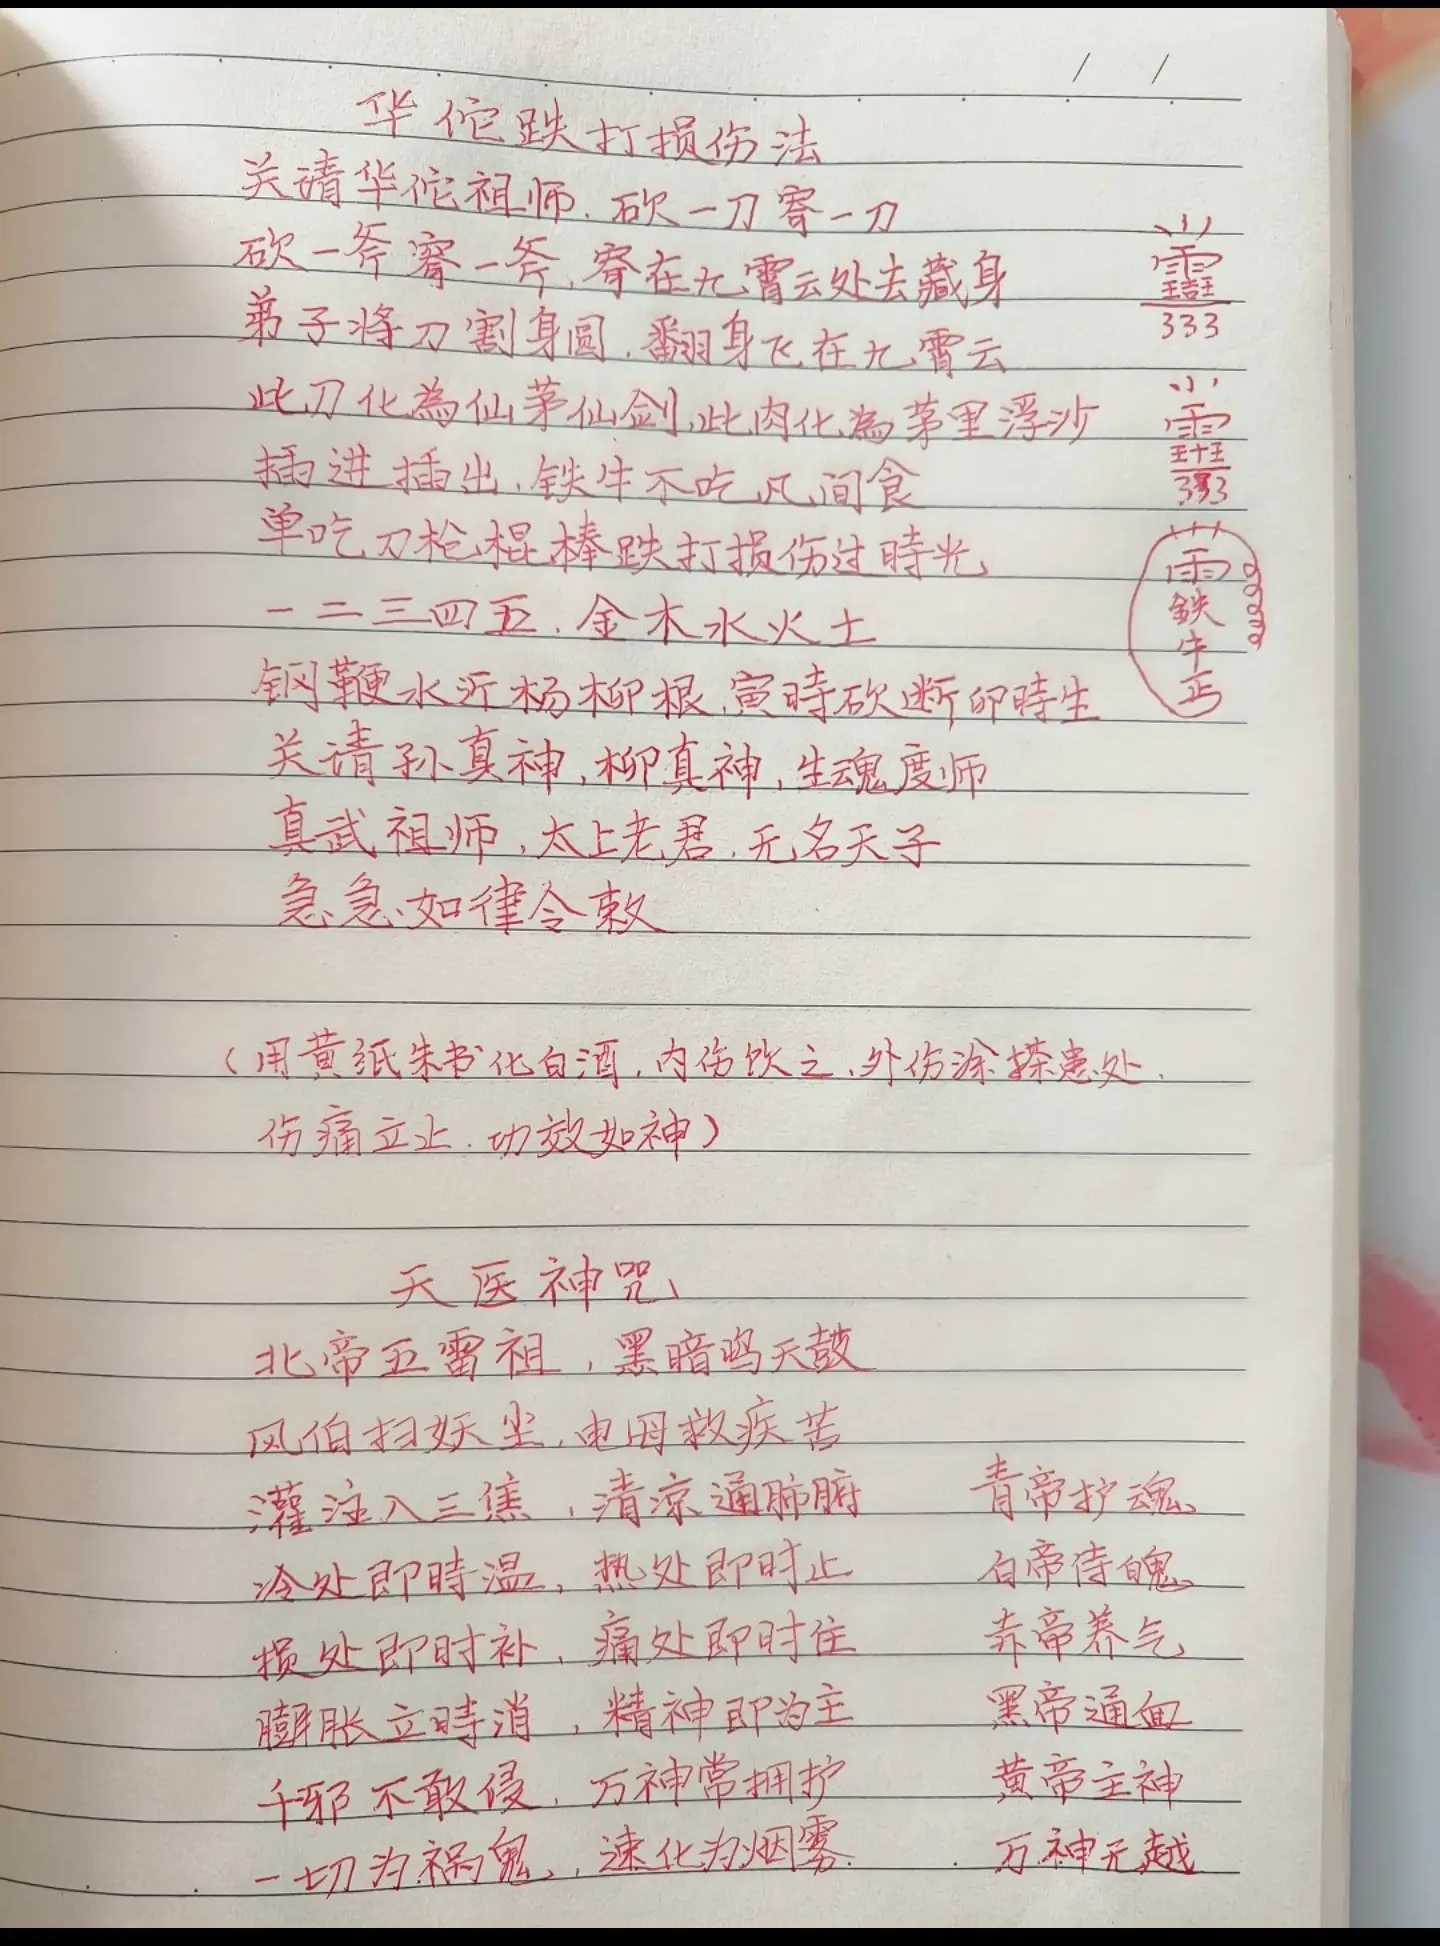 华佗跌打损伤法
关请华佗祖师.砍一刀寄一刀
砍一斧寄一斧,寄在九霄云处去藏身
弟子将刀割身圆,翻身飞在九霄云
此刀化為仙茅仙剑,此肉化為茅里浮沙
插进插出,铁牛不吃凡间食
单吃刀枪棍棒跌打损伤过時光
一二三四五.金木水火土
钢鞭水沂杨柳根,寅時砍断卯時生
关请孙真神,柳真神,生魂度师
真武祖师,太上老君.无名天子
急急如律令敕
333
333
雨
鉄
牛
正
(用黄纸朱书化白酒,内伤饮之.外伤涂搽患处.
伤痛立止.功效如神)
天医神咒
北帝五雷祖,黑暗鸣天鼓
风伯扫妖尘,电母救疾苦
灌注入三焦,清凉通肺腑
冷处即時温,热处即时止
损处即时补,痛处即时住
膨胀立時消,精神即为主
千邪不敢侵,万神常拥护
一切为祸鬼,速化为烟雾.
青帝护魂
白帝侍魄
赤帝养气
黑帝通血
黄帝主神
万神无越